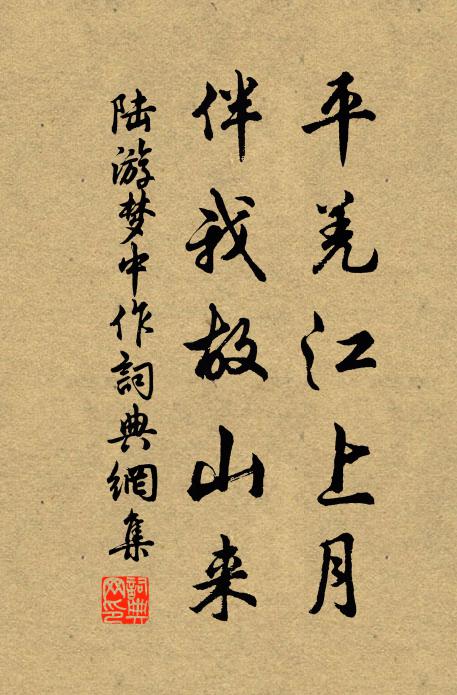 平羌江上月
伴我故山来
陆游梦中作詞典網集
詞典网印